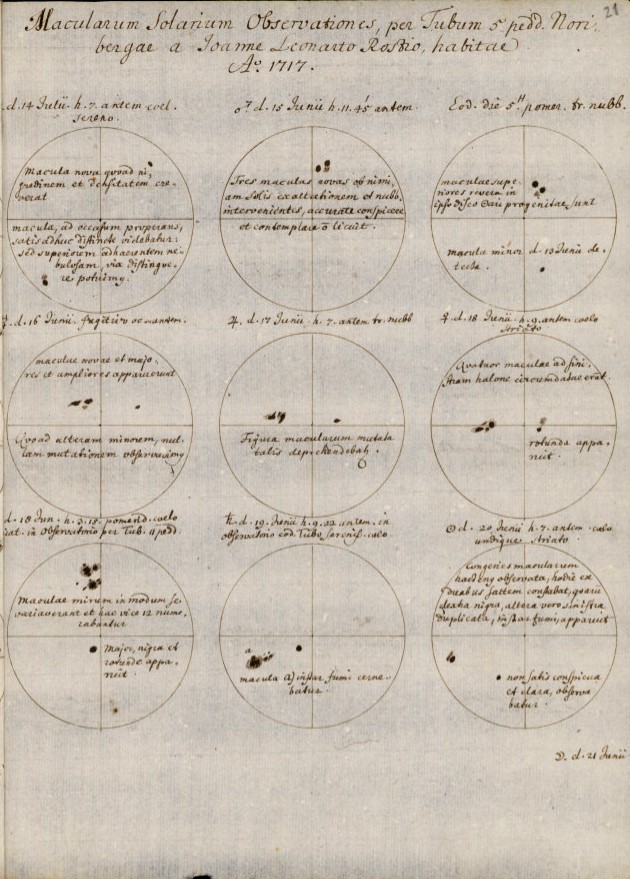 21
Macularum Solarium Observationes, per Tubum 5 pedd. Nori,
bergae a Joanne Leonarto Rostio, habitae
Aº. 1717.
d. 14 Junii h. 7. antem coel.
sereno.
Macula nova quoad ni,
gredinem et densitatem cre,
verat
macula, ad occasum properans,
satis adhuc distincte videbatur:
sed superiorem adhaerentem ne,
bulosam, vix distingue,
re potuimq.
♂ d. 15 Junii h. 11. 45 antem.
Tres maculas novas ob nimi,
am Solis exaltationem et nubb.
intervenientes, accurate conspicere
et contemplare o licuit.
Eod. die 5H pomer. tr. nubb.
maculae supe,
riores revera in
ipso disco Solis progenitae sunt
macula minor d. 13 Junii de,
tecta.
☿. d. 16 Junii. fugitivo antem.
maculae novae et majo,
res et ampliores apparuerunt
Quoad alteram minorem, nul,
lam mutationem observavimq
♃. d. 17 Junii h. 7. antem tr. nubb
Figura macularum mutata
talis deprehendebat.
♀. d. 18 Junii h. 9. antem coelo
striato
Quatuor maculae ad sini,
stram halone circumdatae erat.
rotunda appa,
ruit.
d. 18 Jun. h. 3. 15. pomerid. coelo
in Observatorio per Tub. 11 pedd.
Maculae mirum in modum se
variaverant et hac vice 12 nume,
rabantur
Major, nigra et
rotunda appa,
ruit.
♄. d. 19. Junii h. 9. 22 antem. in
observatorio eod. Tubo sereniss. coelo
a
macula a) instar fumi cerne,
batur.
☉ d. 20 Junii h. 7. antem. coelo
undique striato.
Congeries macularum
hactenq observata, hodie ex
duabus saltem constabat, quaru
dextra nigra, altera vero sinistra
duplicata, instar fumi, apparuit
non satis conspicua
et clara, observa
batur.
D. d. 21 Junii